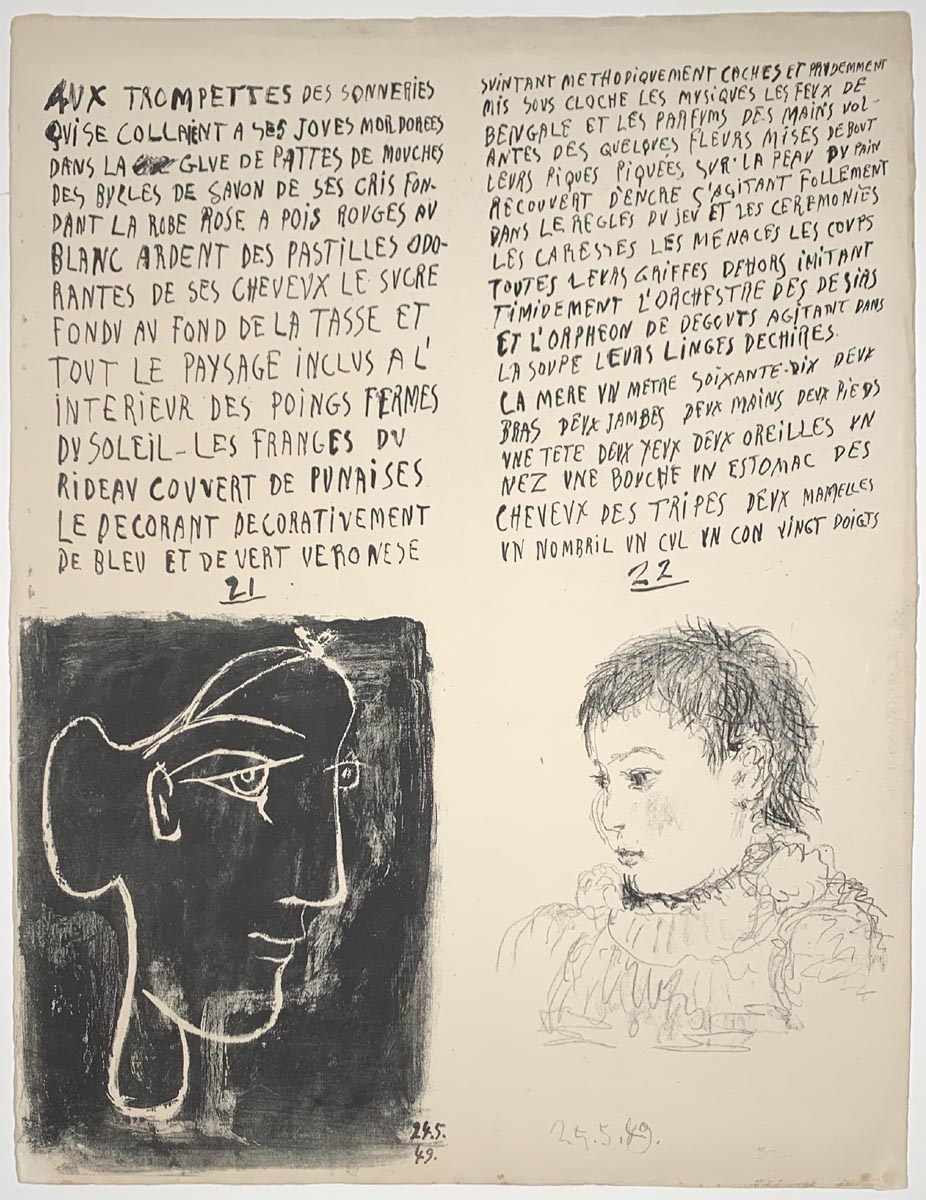 AUX TROMPETTES DES SONNERIES
QUI SE COLLAIENT A SES JOUES MORDOREES
DANS LA GLUE DE PATTES DE MOUCHES
DES BULLES DE SAVON DE SES CRIS FON-
DANT LA ROBE ROSE A POIS ROUGES AU
BLANC ARDENT DES PASTILLES ODO-
RANTES DE SES CHEVEUX LE SUCRE
FONDU AU FOND DE LA TASSE ET
TOUT LE PAYSAGE INCLUS A L'
INTERIEUR DES POINGS FERMES
DU SOLEIL - LES FRANGES DU
RIDEAU COUVERT DE PUNAISES
LE DECORANT DECORATIVEMENT
DE BLEU ET DE VERT VERONESE
21
SUINTANT METHODIQUEMENT CACHES ET PRUDEMMENT
MIS SOUS CLOCHE LES MUSIQUES LES FEUX DE
BENGALE ET LES PARFUMS DES MAINS VOL-
ANTES DES QUELQUES FLEURS MISES DEBOUT
LEURS PIQUES PIQUEES SUR LA PEAU DU PAIN
RECOUVERT D'ENCRE S'AGITANT FOLLEMENT
DANS LE REGLES DU JEU ET LES CEREMONIES
LES CARESSES LES MENACES LES COUPS
TOUTES LEURS GRIFFES DEHORS IMITANT
TIMIDEMENT L'ORCHESTRE DES DESIRS
ET L'ORPHEON DE DEGOUTS AGITANT DANS
LA SOUPE LEURS LINGES DECHIRES.
LA MERE UN METRE SOIXANTE-DIX DEUX
BRAS DEUX JAMBES DEUX MAINS DEUX PIEDS
UNE TETE DEUX YEUX DEUX OREILLES UN
NEZ UNE BOUCHE UN ESTOMAC DES
CHEVEUX DES TRIPES DEUX MAMELLES
UN NOMBRIL UN CUL UN CON VINGT DOIGTS
22
24.5.
49.
24.5.49.